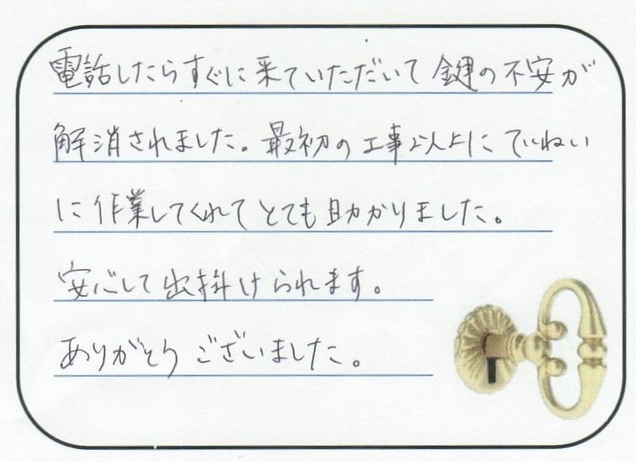 電話したらすぐに来ていただいて鍵の不安が
解消されました。最初の工事以上にていねい
に作業してくれてとても助かりました。
安心して出掛けられます。
ありがとうございました。